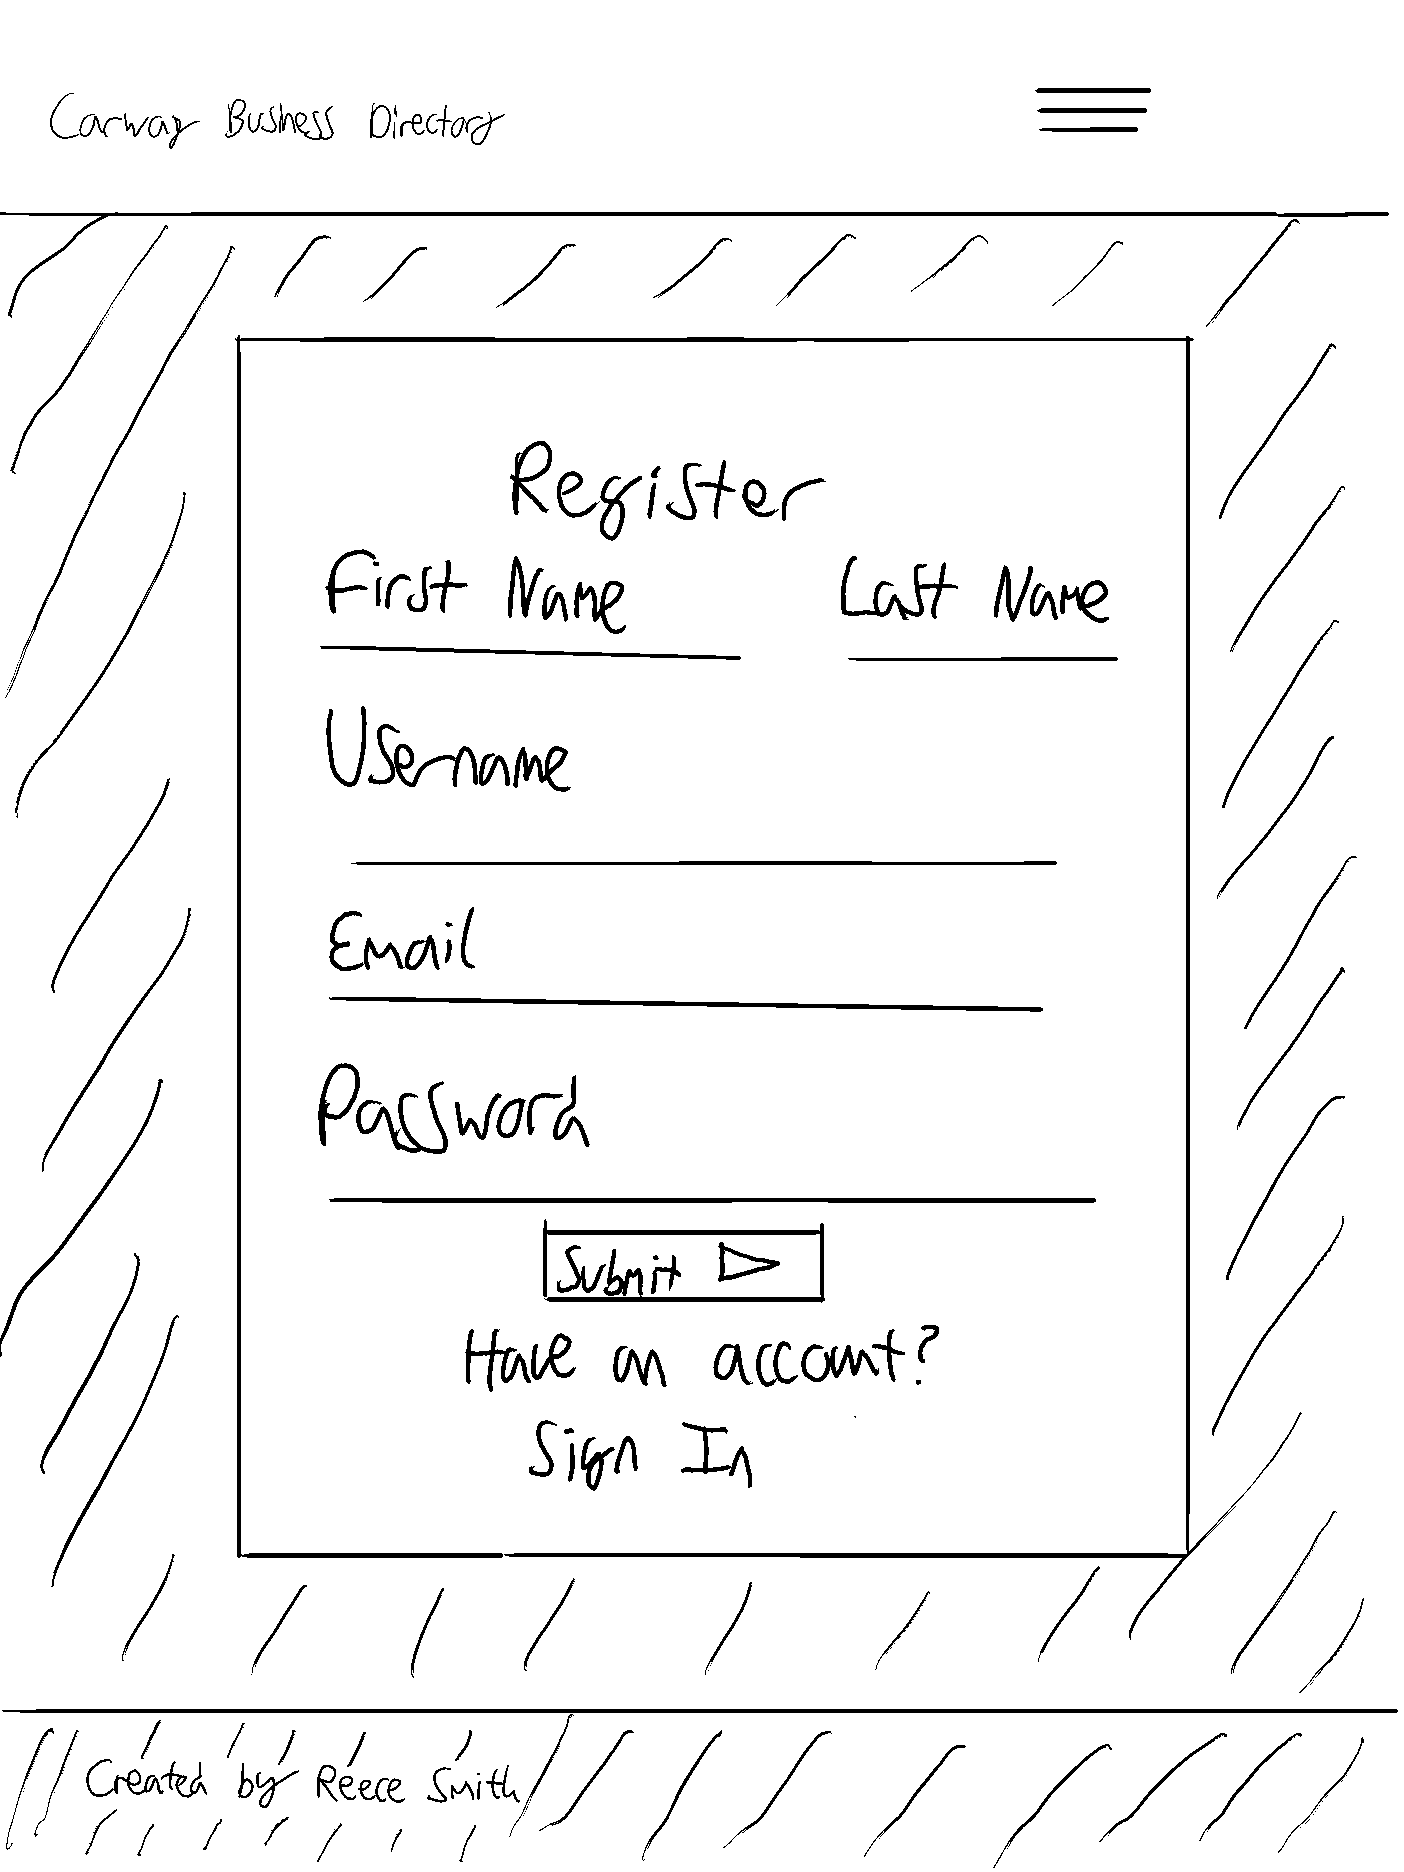 Carway Business Directory
Register
First Name Last Name
Username
Email
Password
Submit
Have an account?
Sign In
Created by Reece Smith